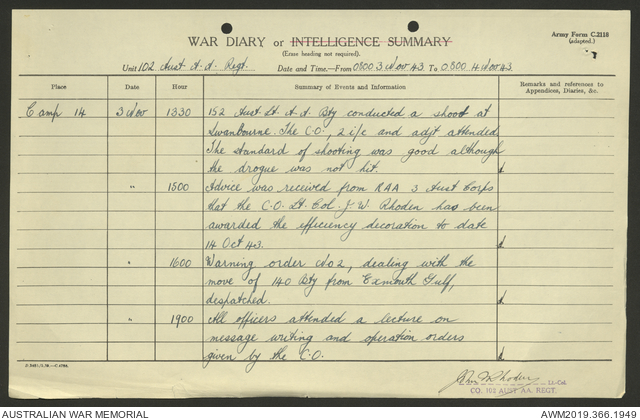 WAR DIARY or INTELLIGENCE SUMMARY
(Erase heading not required).
Army Form C.2118
(adapted.)
Unit 102 Aust A.A. Regt. Date and Time.—From 0800 3 Nov 43 To 0800 4 Nov 43
Place Date Hour Summary of Events and Information Remarks and references to Appendices, Diaries, &c.
Camp 14 3 Nov 1330 152 Aust Lt A.A. Bty conducted a shoot at
Swanbourne. The C.O., 2 i/c and adjt attended.
The standard of shooting was good although
the drogue was not hit.
" 1500 Advice was received from RAA 3 Aust Corps
that the C.O. Lt. Col. J. W. Rhoden has been
awarded the efficiency decoration to date
14 Oct 43.
" 1600 Warning order No 2, dealing with the
move of 140 Bty from Exmouth Gulf,
despatched.
" 1900 All officers attended a lecture on
message writing and operation orders
given by the C.O.
Rhoden Lt-Col
CO. 102 AUST. AA. REGT.
AUSTRALIAN WAR MEMORIAL AWM2019.366.1949